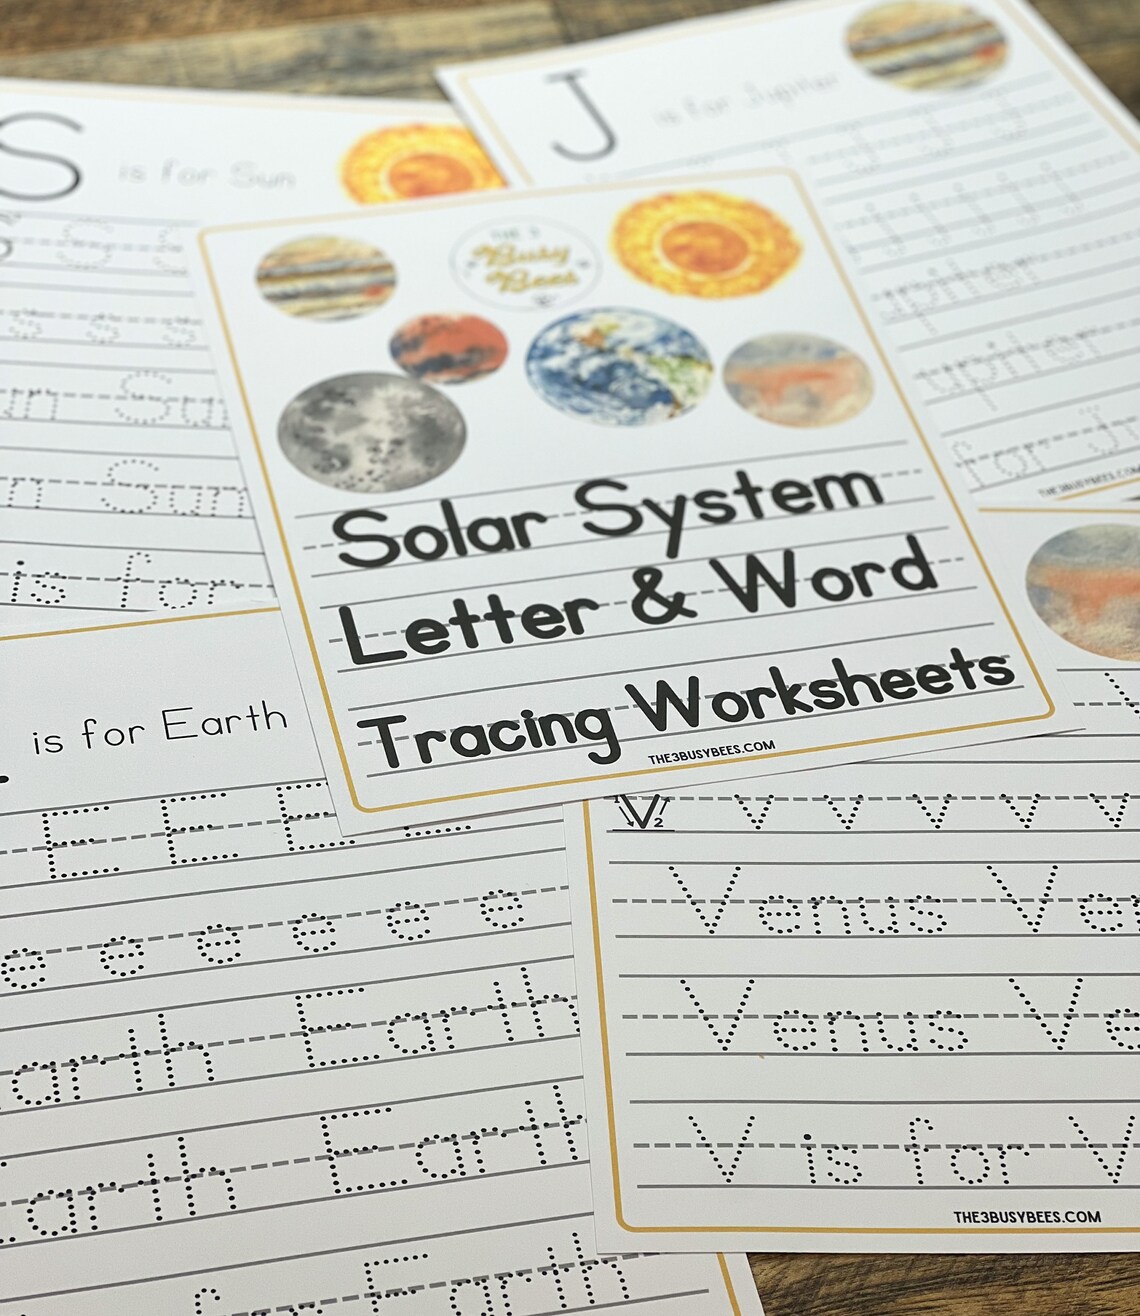 S is for Sun
S S S
s s s
un Su
n Sun
is for
J is for Jupiter
J J J
J J J J J
upiter
upiter
for J
THE3BUSYBEES.COM
THE 3
Busy
Bees
Solar System
Letter & Word
Tracing Worksheets
THE3BUSYBEES.COM
is for Earth
E E E E
e e e e e e
arth Earth
arth Earth
for Earth
V 2 v v v v v
Venus Ve
Venus Ve
V is for V
THE3BUSYBEES.COM